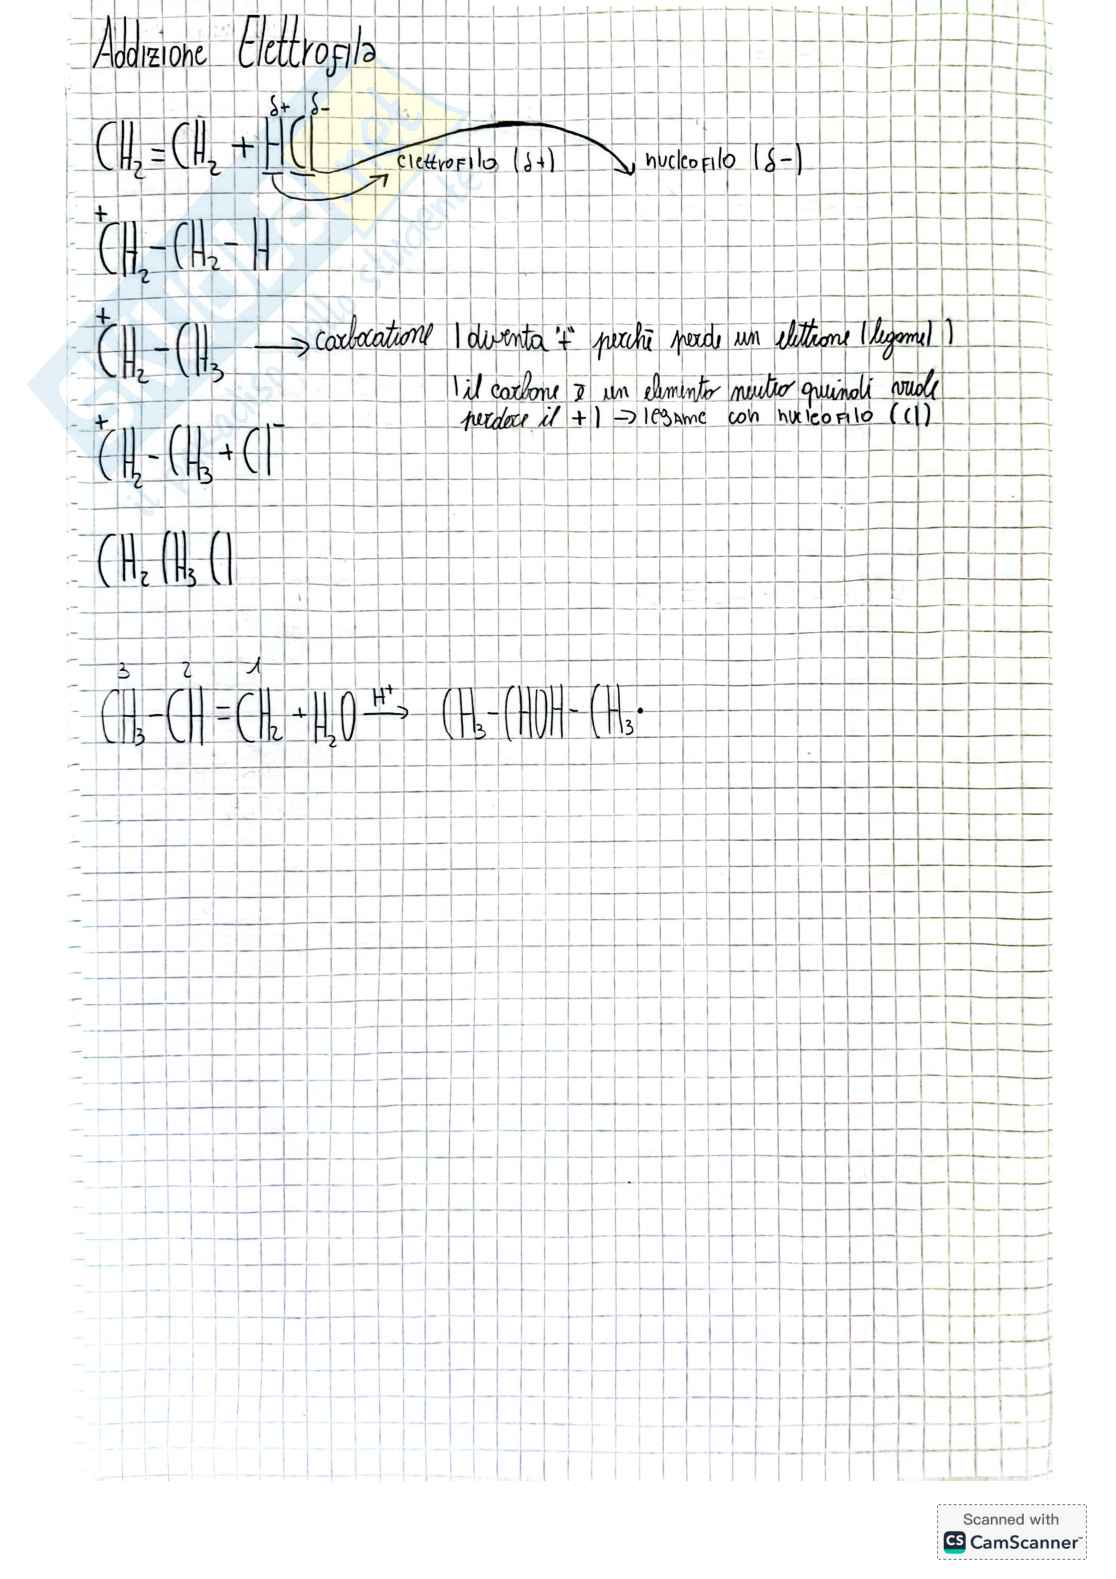 Addizione Elettrofila
δ+ δ-
CH₂=CH₂ + HCl elettrofilo (δ+) nucleofilo (δ-)
+
CH₂-CH₂-H
+
CH₂-CH₃ → carbocatione (diventa "+" perchè perde un elettrone (legame))
(il carbone è un elemento neutro quindi vuole
perdere il +) → legame con nucleofilo (Cl)
+
CH₂-CH₃ + Cl⁻
CH₂ CH₃ Cl
3 2 1
CH₃-CH=CH₂ + H₂O H⁺→ CH₃-CHOH-CH₃.
Scanned with
CS CamScanner